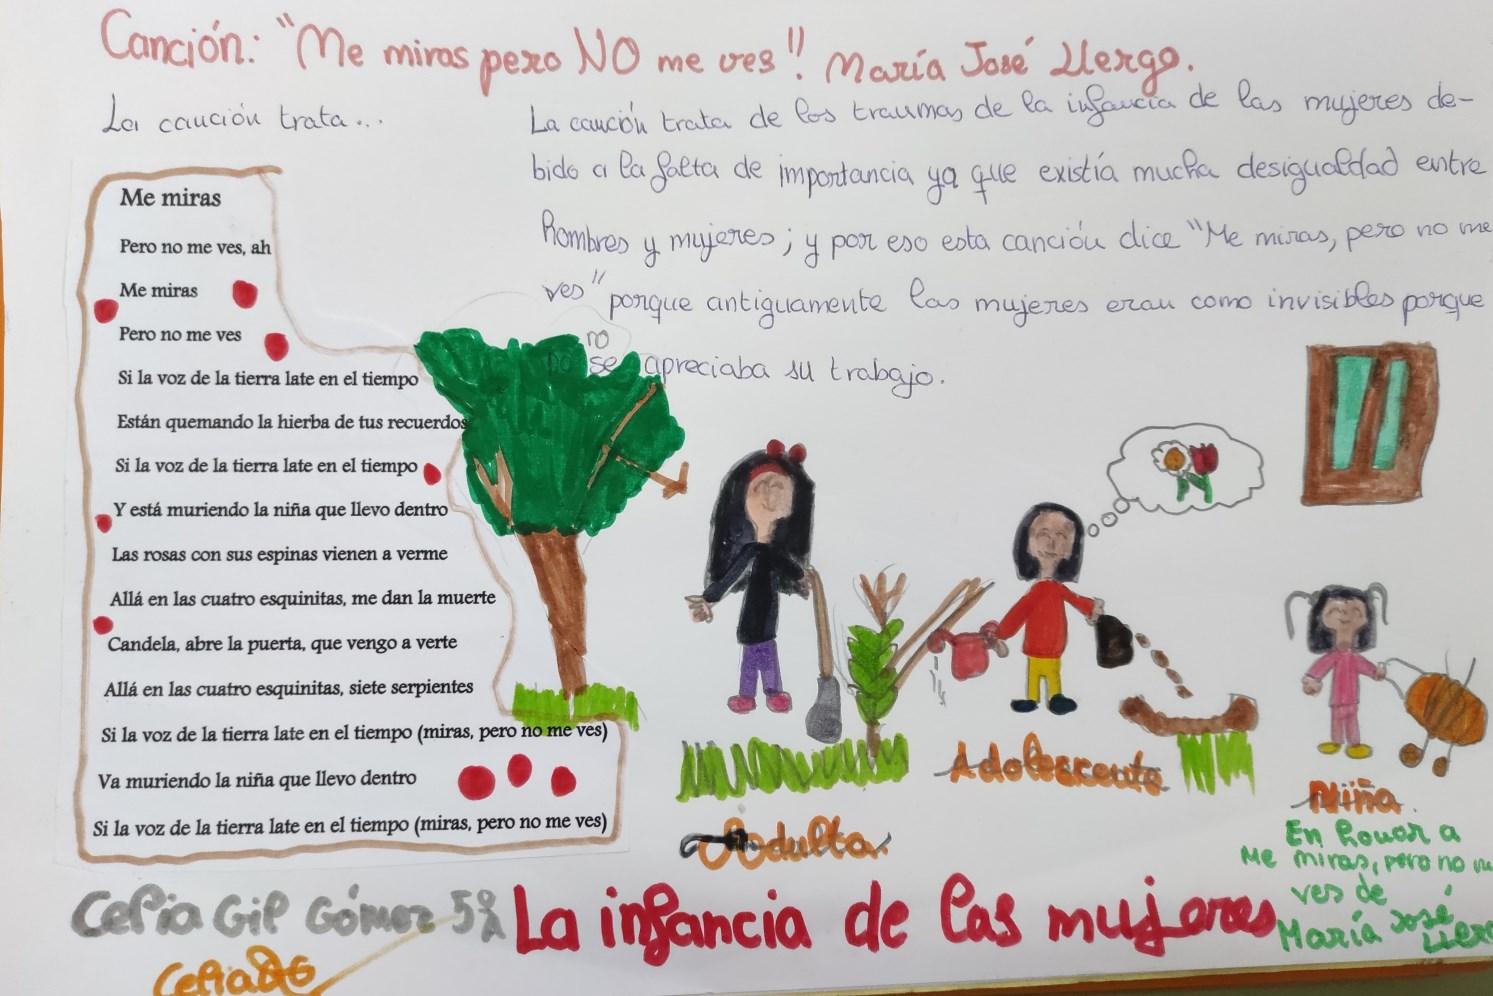 Canción: "Me miras pero NO me ves". María José Llergo.
La canción trata...
La canción trata de los traumas de la infancia de las mujeres de-
bido a la falta de importancia ya que existía mucha desigualdad entre
hombres y mujeres; y por eso esta canción dice "Me miras, pero no me
ves" porque antiguamente las mujeres eran como invisibles porque
no
no se apreciaba su trabajo.
Me miras
Pero no me ves, ah
Me miras
Pero no me ves
Si la voz de la tierra late en el tiempo
Están quemando la hierba de tus recuerdos
Si la voz de la tierra late en el tiempo
Y está muriendo la niña que llevo dentro
Las rosas con sus espinas vienen a verme
Allá en las cuatro esquinitas, me dan la muerte
Candela, abre la puerta, que vengo a verte
Allá en las cuatro esquinitas, siete serpientes
Si la voz de la tierra late en el tiempo (miras, pero no me ves)
Va muriendo la niña que llevo dentro
Si la voz de la tierra late en el tiempo (miras, pero no me ves)
Adulta.
Adolescente
Niña.
En honor a
Me miras, pero no
ves de
María José
Celia Gil Gómez 5ºA
La infancia de las mujeres